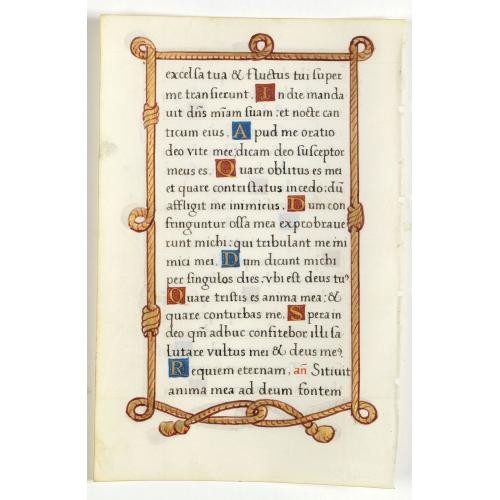 excelsa tua & fluctus tui super
me transierunt. In die manda
uit dn̄s mīam suam: et nocte can
ticum eius. Apud me oratio
deo vite mee: dicam deo susceptor
meus es. Quare oblitus es mei
et quare contristatus incedo: dū
affligit me inimicus. Dum con
fringuntur ossa mea exprobraue
runt michi: qui tribulant me ini
mici mei. Dum dicunt michi
per singulos dies: vbi est deus tuꝰ
Quare tristis es anima mea: &
quare conturbas me. Spera in
deo qm̄ adhuc confitebor illi sa
lutare vultus mei & deus meꝰ.
Requiem eternam. an̄ Sitiuit
anima mea ad deum fontem